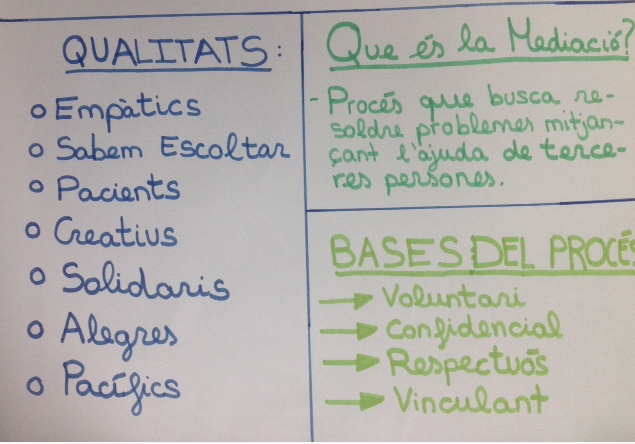 QUALITATS:
o Empàtics
o Sabem Escoltar
o Pacients
o Creatius
o Solidaris
o Alegres
o Pacífics
Que és la Mediació?
- Procés que busca re-
soldre problemes mitjan-
çant l'ajuda de terce-
res persones.
BASES DEL PROCÉS
→ Voluntari
→ Confidencial
→ Respectuós
→ Vinculant